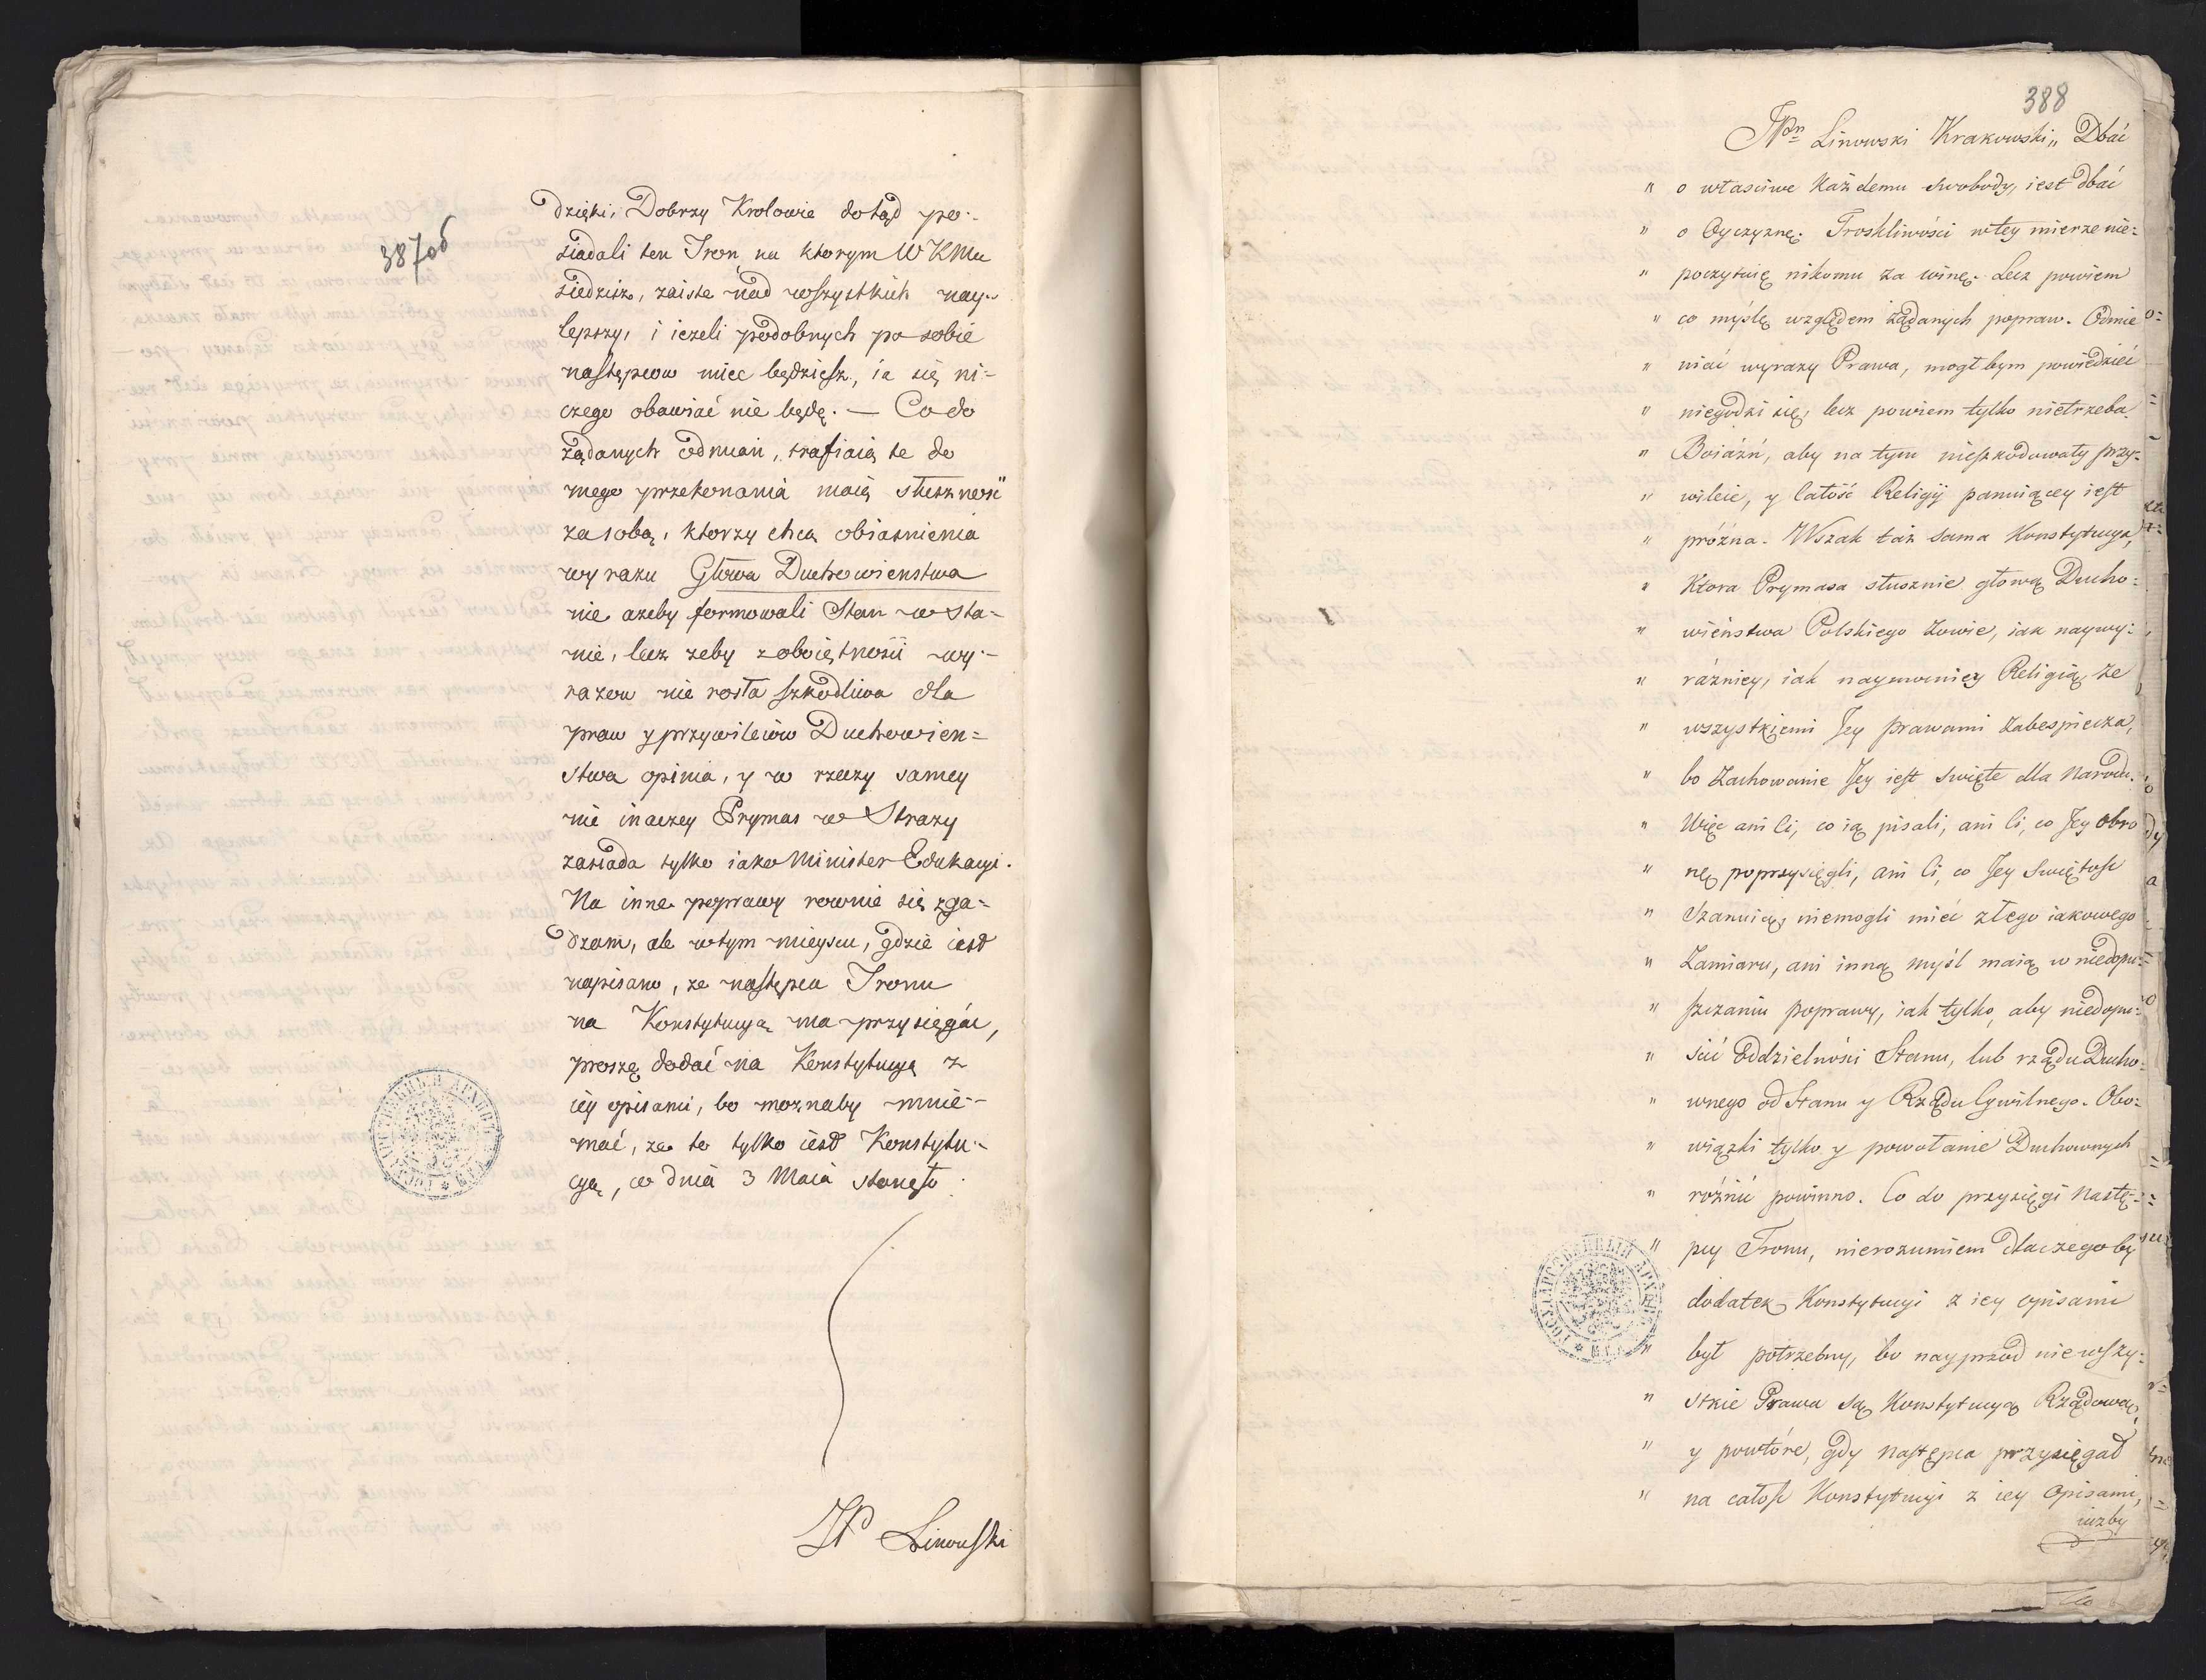 387об
dzięki, Dobrzy Krolowie dotąd po-
siadali ten Tron na ktorym WKMu
siedzisz, zaiste nad wszystkich nay-
lepszy, i ieżeli podobnych po sobie
następcow miec będziesz, ia się ni-
czego obawiać nie będę. — Co do
żądanych odmian, trafiaią te do
mego przekonania maią słuszność
za sobą, ktorzy chcą obiasnienia
wyrazu Głowa Duchowienstwa
nie azeby formowali Stan w Sta-
nie, lecz zeby z oboiętności wy-
razow nie rosła szkodliwa dla
praw y przywileiow Duchowien=
stwa opinia, y w rzeczy samey
nie inaczey Prymas w Strazy
zasiada tylko iako Minister Edukacyi.
Na inne poprawy rownie się zga=
dzam, ale w tym mieyscu, gdzie iest
napisano, ze następca Tronu
na Konstytucyą ma przysięgać,
proszę dodać na Konstytucyą z
iey opisami, bo moznaby mnie-
mać, ze to tylko iest Konstytu-
cyą, co dnia 3 Maia stanęło
JP Linowski
388
JPn Linowski Krakowski „ Dbać
„ o właściwe Każdemu swobody, iest dbać
„ o Oyczyznę. Troskliwości w tey mierze nie=
„ poczytuię nikomu za winę. Lecz powiem
„ co myślę względem żądanych popraw. Odmie
„ niać wyrazy Prawa, mogłbym powiedzieć
„ niegodzi się, lecz powiem tylko nietrzeba.
„ Boiaźń, aby na tym nieszkodowały przy-
„ wileie, y Całość Religii panuiącey iest
„ próżna. Wszak taż sama Konstytucya,
„ Ktora Prymasa słusznie głową Ducho=
„ wieństwa Polskiego zowie, iak naywy=
„ raźniey, iak naymocniey Religią ze
„ wszystkiemi Jey prawami zabespiecza,
„ bo Zachowanie Jey iest święte dla Narodu.
„ Więc ani Ci, co ią pisali, ani Ci, co Jey obro
„ nę poprzysięgli, ani Ci, co Jey Swiętość
„ Szanuią, niemogli mieć złego iakowego
„ Zamiaru, ani inną myśl maią w niedopu=
„ szczaniu poprawy, iak tylko, aby niedopu=
„ ścić Oddzielności Stanu, lub rządu Ducho=
„ wnego od Stanu y Rządu Cywilnego. Obo=
„ wiązki tylko y powołanie Duchownych
„ różnić powinno. Co do przysięgi Nastę-
„ pcy Tronu, nierozumiem dlaczegoby
dodatek Konstytucyi z iey opisami
„ był potrzebny, bo nayprzod nie wszy=
„ stkie Prawa są Konstytucyą Rządową,
„ y powtóre, gdy następca przysięgał
„ na całość Konstytucyi z iey Opisami,
iużby